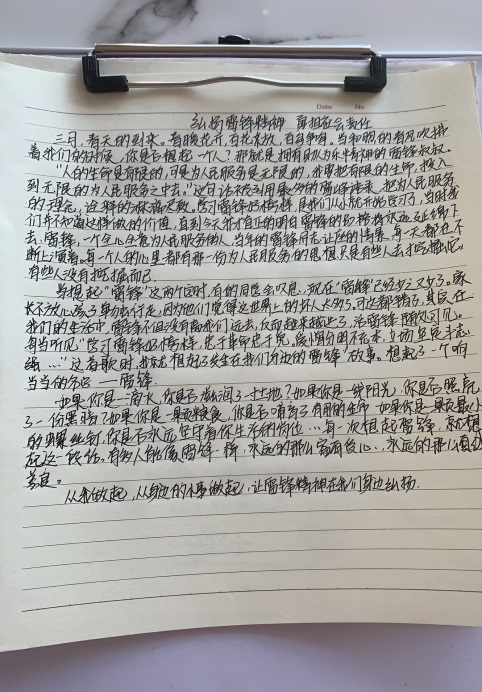 Date No
弘扬雷锋精神 肩担社会责任
三月,春天的到来。春暖花开,百花齐放,百鸟争鸣。当和煦的春风吹拂
着我们的时候,你是否想起一个人?那就是拥有助人为乐牛精神的雷锋叔叔。
"人的生命是有限的,可是为人民服务是无限的,我要把有限的生命,投入
到无限的为人民服务之中去。"这句话
的理念,这样的 学习雷锋好榜样,是我们从小就开始学习了,当时我
们并不知道这样做的价值,直到今天我才真正的明白雷锋的好榜样
去。雷锋,一个全心全意为人民服务的人,当年的雷锋 的情景,每一天都在不
断上演着。每一个人的心里都有那一份为人民服务的思想只是有些人去挖掘它,
有些人没有挖掘而已。
每想起"雷锋"这两个字时,有的同学会叹息,现在"雷锋"已经少之又少了。家
长不放心孩子单独行走,因为他们觉得这世界上的坏人太多了。可这都错了,其实在
我们的生活中,雷锋不但没有离我们远去,反而越来越近了,活雷锋随处可见。
每当听见"学习雷锋好榜样,忠于革命忠于党,爱憎分明不忘本,立场坚定斗志
强……"这首歌时,我就想起了发生在我们身边的"雷锋"故事。想起了一个响
当当的名字——雷锋。
如果你是一滴水,你是否滋润了一寸土地?如果你是一线阳光,你是否照亮
了一份黑暗?如果你是一颗粮食,你是否哺育了有用的生命 如果你是一颗最小
的螺丝钉,你是否永远坚守着你生活的岗位…每一次想起雷锋,就想
起这一段话。有多人能像雷锋一样,永远的那么富有爱心、永远的那么
善良。
从我做起,从身边的小事做起,让雷锋精神在我们身边弘扬.